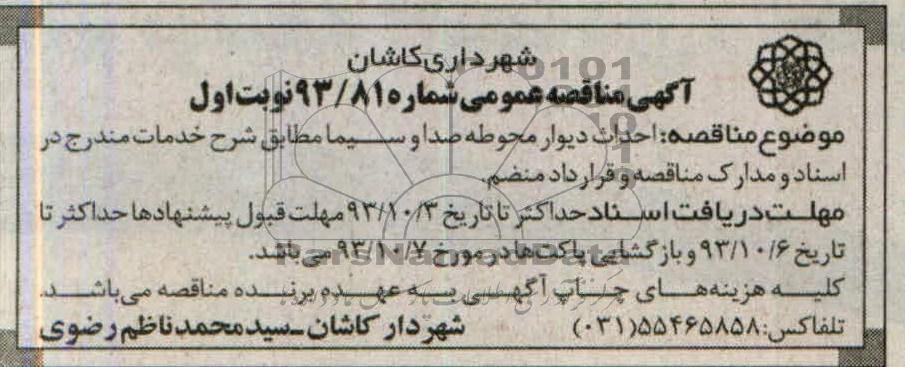 شهرداری کاشان
آگهی مناقصه عمومی شماره ۹۳/۸۱ نوبت اول
موضوع مناقصه: احداث دیوار محوطه صدا و سیما مطابق شرح خدمات مندرج در
اسناد و مدارک مناقصه و قرارداد منضم.
مهلت دریافت اسناد حداکثر تا تاریخ ۹۳/۱۰/۳ مهلت قبول پیشنهادها حداکثر تا
تاریخ ۹۳/۱۰/۶ و بازگشایی پاکت‌ها در مورخ ۹۳/۱۰/۷ می‌باشد.
کلیه هزینه‌های چاپ آگهی به عهده برنده مناقصه می‌باشد.
تلفاکس: ۵۵۴۶۵۸۵۸(۰۳۱)
شهردار کاشان ـ سید محمد ناظم رضوی
ParsNamadData